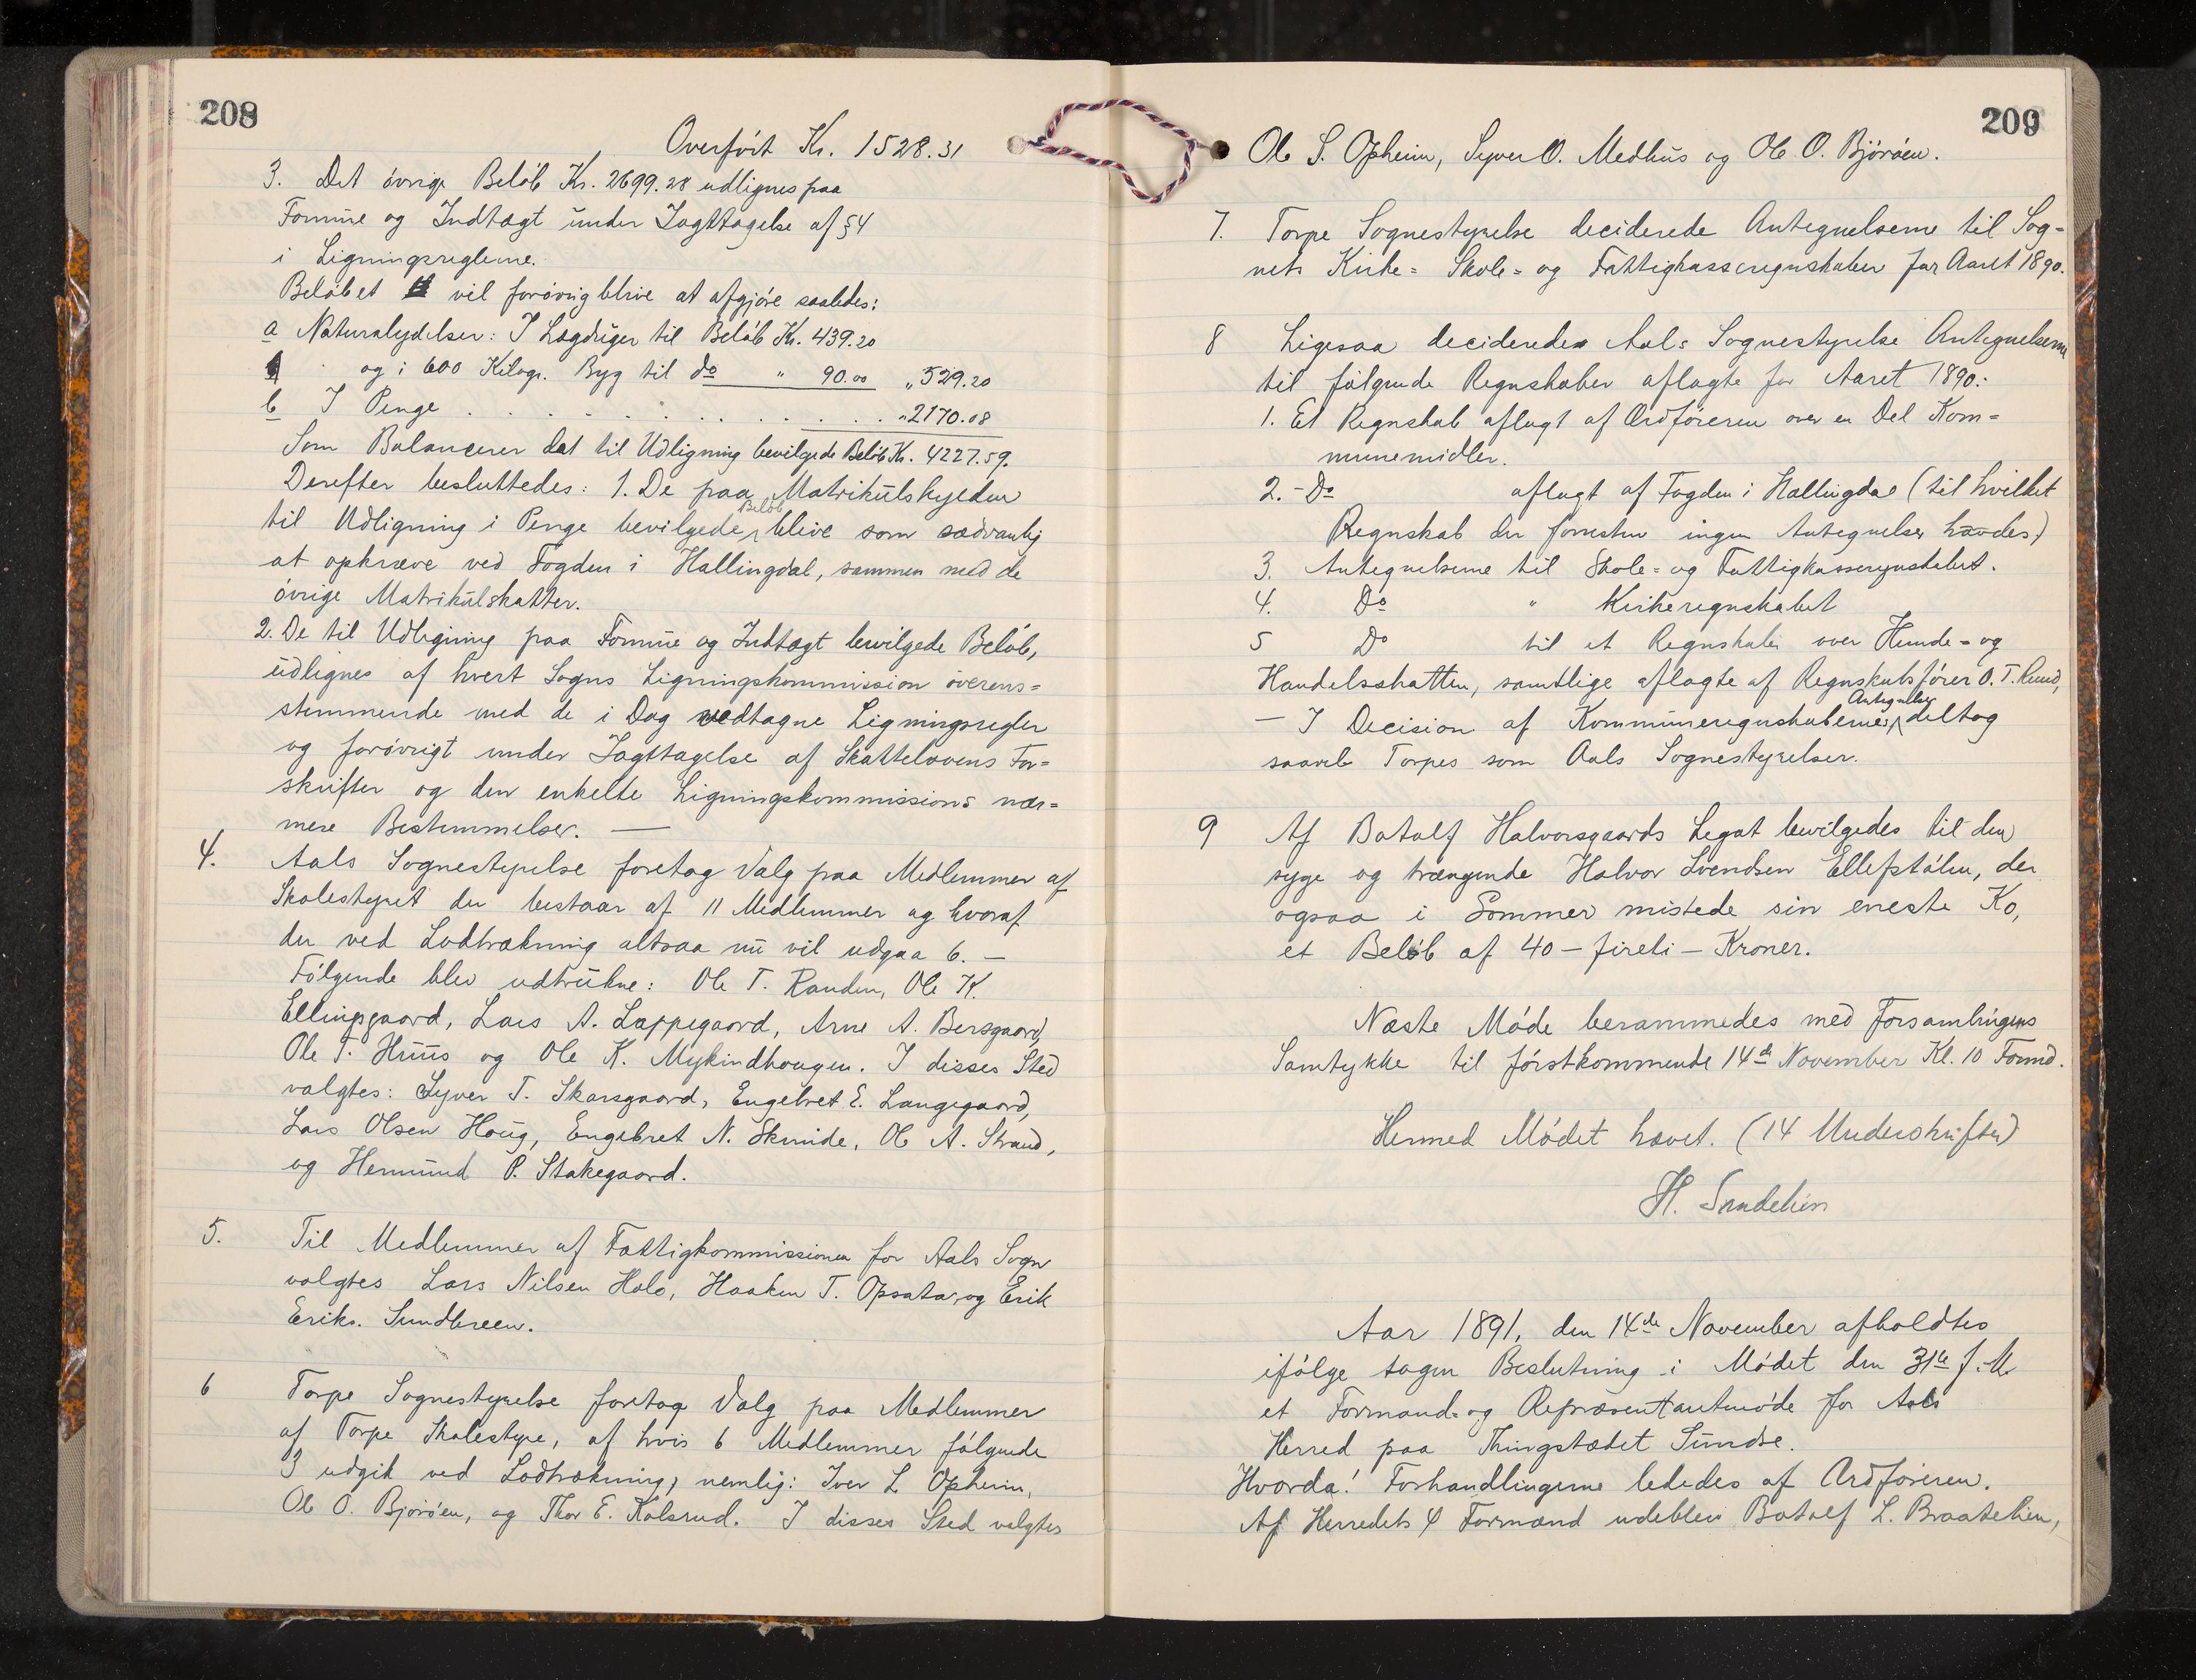 208
Overført Kr. 1528.31
3. Det øvrige Beløb Kr. 2699.28 udlignes paa
Formue og Indtægt under Iagttagelse af §4
i Ligningsreglerne.
Beløbet vil forøvrig blive at afgjøre saaledes:
a Naturalydelser: I Lægdsuger til Beløb Kr. 439.20
og i 600 Kilogr. Byg til do " 90.00 " 529.20
b I Penge . . . . . . . . . . . . " 2170.08
Som Balancerer det til Udligning bevilgede Beløb Kr. 4227.59.
Derefter besluttedes: 1. De paa Matrikulskylden
til Udligning i Penge bevilgede Beløb blive som sædvanlig
at opkræve ved Fogden i Hallingdal, sammen med de
øvrige Matrikulskatter.
2. De til Udligning paa Formue og Indtægt bevilgede Beløb,
udlignes af hvert Sogns Ligningskommission overens=
stemmende med de i Dag vedtagne Ligningsregler
og forøvrigt under Iagttagelse af Skattelovens For=
skrifter og den enkelte Ligningskommissions nær=
mere Bestemmelser. —
4. Aals Sognestyrelse foretog Valg paa Medlemmer af
Skolestyret der bestaar af 11 Medlemmer og hvoraf
der ved Lodtrækning altsaa nu vil udgaa 6. —
Følgende blev udtrukne: Ole T. Randen, Ole K.
Ellingsgaard, Lars A. Lappegaard, Arne A. Bersgaard,
Ole T. Huus og Ole K. Mykindhougen. I disses Sted
valgtes: Syver T. Skarsgaard, Engebret E. Langegaard,
Lars Olsen Houg, Engebret N. Skrinde, Ole A. Strand,
og Hermund P. Stakegaard.
5. Til Medlemmer af Fattigkommissionen for Aals Sogn
valgtes Lars Nilsen Holo, Haaken T. Opsata, og Erik
Eriks. Sundbreen.
6 Torpe Sognestyrelse foretog Valg paa Medlemmer
af Torpe Skolestyre, af hvis 6 Medlemmer følgende
3 udgik ved Lodtrækning, nemlig: Iver L Opheim,
Ole O. Bjørøen, og Thor E. Kolsrud. I disses Sted valgtes
209
Ole S. Opheim, Syver O. Medhus og Ole O. Bjørøen.
7. Torpe Sognestyrelse deciderede Antegnelserne til Sog=
nets Kirke= Skole= og Fattigkasseregnskaber for Aaret 1890.
8 Ligesaa decideredes Aals Sognestyrelse Antegnelserne
til følgende Regnskaber aflagte for Aaret 1890:
1. Et Regnskab aflagt af Ordføreren over en Del Kom=
munemidler.
2. - Do aflagt af Fogden i Hallingdal (til hvilket
Regnskab der forresten ingen Antegnelser havdes)
3. Antegnelserne til Skole= og Fattigkasseregnskabet.
4. Do " Kirkeregnskabet
5 Do til et Regnskab over Hunde= og
Handelsskatten, samtlige aflagte af Regnskabsfører O. T. Ruud,
— I Decision af Kommuneregnskabernes Antegnelser deltog
saavel Torpes som Aals Sognestyrelser.
9 Af Botolf Halvorsgaards Legat bevilgedes til den
syge og trængende Halvor Svendsen Ellefstølen, der
ogsaa i Sommer mistede sin eneste Ko,
et Beløb af 40 — fireti — Kroner.
Næste Møde berammedes med Forsamlingens
Samtykke til førstkommende 14de November Kl. 10 Formd.
Hermed Mødet hævet. (14 Underskrifter)
H. Sundehin
Aar 1891, den 14de November afholdtes
ifølge tagen Beslutning i Mødet den 31te f. M
et Formand= og Repræsentantmøde for Aals
Herred paa Thingstedet Sundre.
Hvorda! Forhandlingerne lededes af Ordføreren.
Af Herredets 4 Formænd udeblev Botolf L. Braatehin,